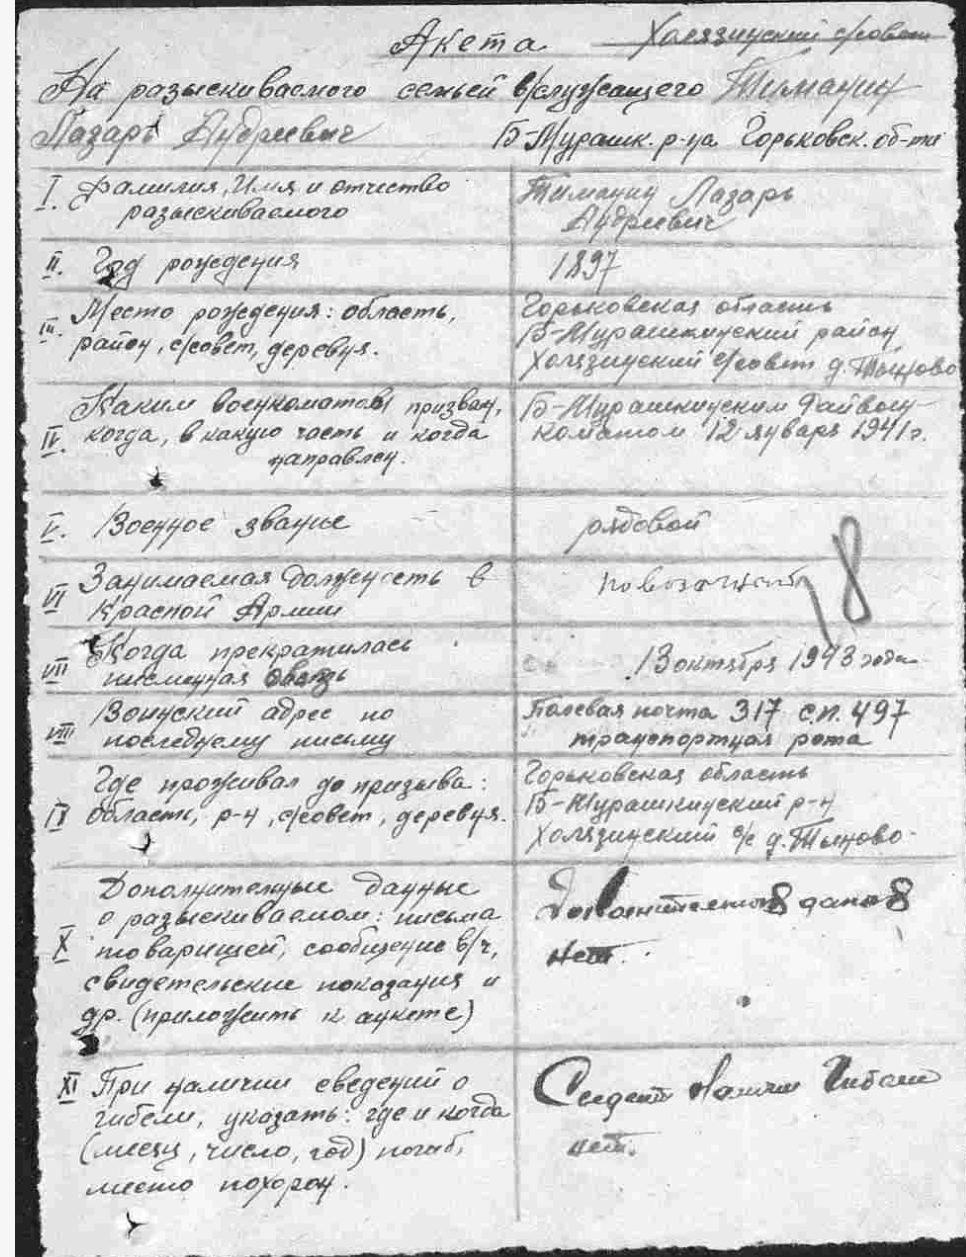 Акета Холязинский с/совет
На разыскиваемого семьей в/служащего Тиманин
Лазарь Андриевич Б-Мурашк. р-на Горьковск. об-ти
I. Фамилия, Имя и отчество
разыскиваемого
Тиманин Лазарь
Андриевич
II. Год рождения
1897
III. Место рождения: область,
район, с/совет, деревня.
Горьковская область
Б-Мурашкинский район
Холязинский с/совет д. Тыново
IV. Каким военкоматом призван,
когда, в какую часть и когда
направлен.
Б-Мурашкинским Райвоен-
коматом 12 январь 1941г.
V. Военное звание
рядовой
VI Занимаемая должность в
Красной Армии
повозочный
18
VII Когда прекратилась
письменная связь
13 октября 1943 года
VIII Воинский адрес по
последнему письму
Полевая почта 317 с.п. 497
транспортная рота
IX Где проживал до призыва:
область, р-н, с/совет, деревня.
Горьковская область
Б-Мурашкинский р-н
Холязинский с/с д. Тыново
X Дополнительные данные
о разыскиваемом: письма
товарищей, сообщение в/ч,
свидетельские показания и
др. (приложить к анкете)
нет.
XI При наличии сведений о
гибели, указать: где и когда
(месяц, число, год) погиб,
место похорон.
нет.